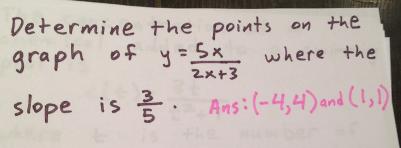 Determine the points on the
graph of y = 5x/2x+3 where the
slope is 3/5. Ans: (-4,4) and (1,1)